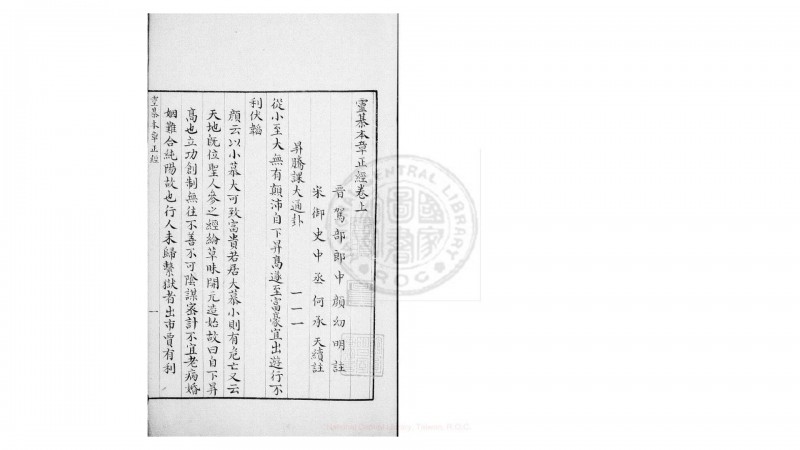 靈棊本章正經卷上
晉駕部郎中顏幼明註
宋御史中丞何承天續註
昇騰課大通卦 一一一
從小至大無有顛沛自下昇高遂至富豪宜出遊行不
利伏韜
顏云以小慕大可致富貴若居大慕小則有危亡又云
天地既位聖人參之經綸草昧開元造始故曰自下昇
高也立功創制無往不善不可陰謀密計不宜老病婚
姻難合純陽故也行人未歸繫獄者出市賈有利
靈棊本章正經
一
CENTRAL LIBRARY
R O C
國家圖書